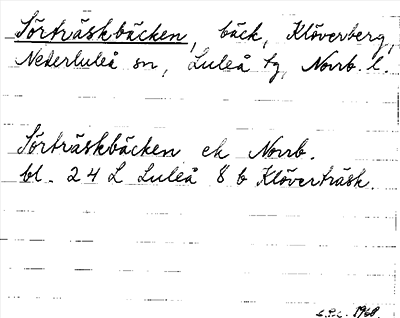 Sörträskbäcken, bäck, Klöverberg,
Nederluleå sn, Luleå tg, Norrb. l.
Sörträskbäcken ek Norrb.
bl. 24 L Luleå 8 b Klöverträsk.
1960.